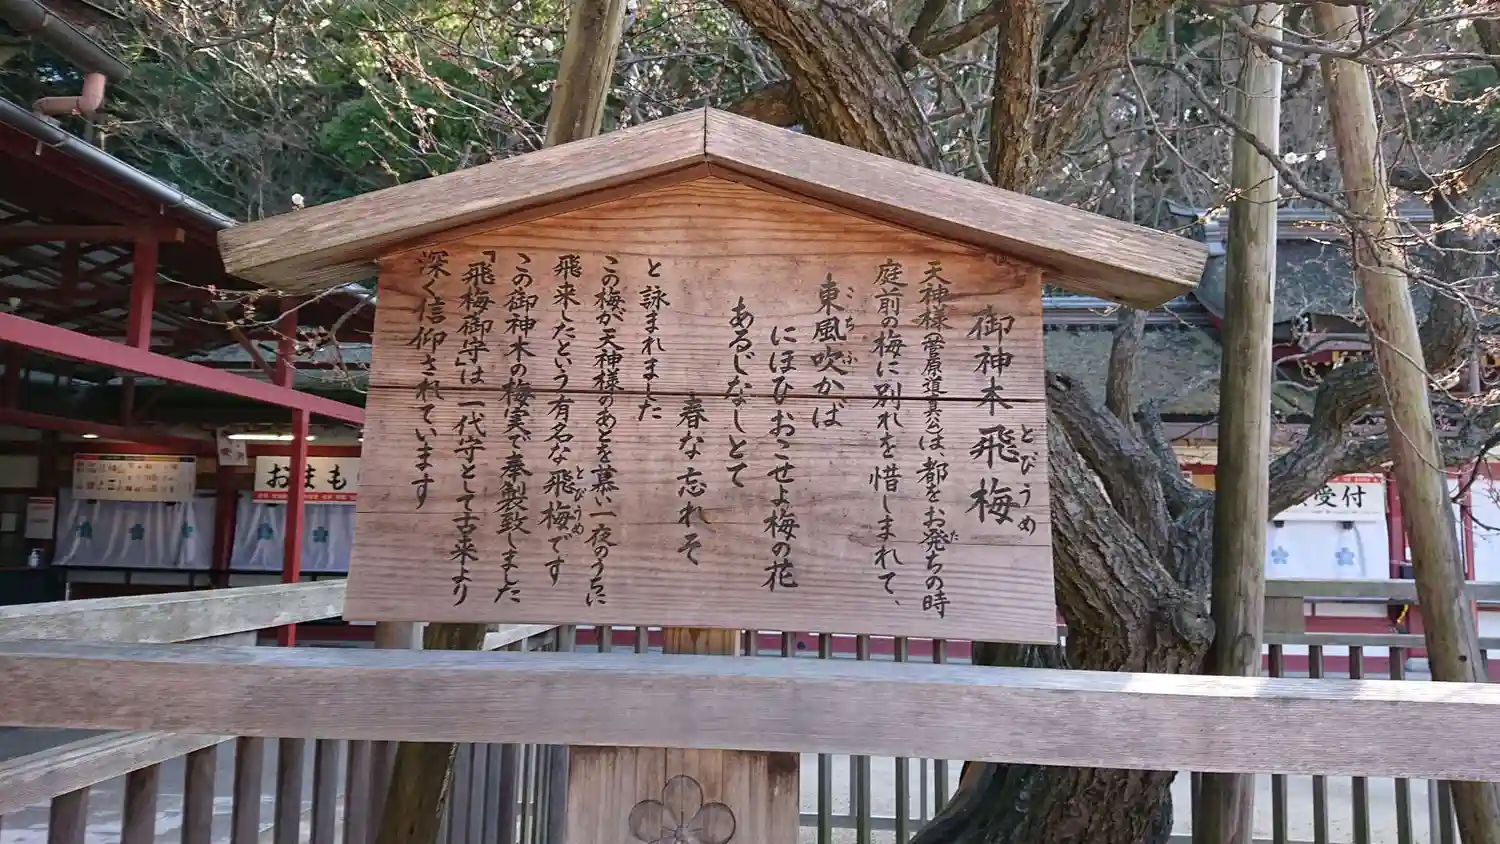 御神木 飛梅
とびうめ
天神様(菅原道真公)は、都をお発ちの時
た
庭前の梅に別れを惜しまれて、
東風吹かば
こちふ
にほひおこせよ梅の花
あるじなしとて
春な忘れそ
と詠まれました
この梅が天神様のあとを慕い一夜のうちに
飛来したという有名な飛梅です
とびうめ
この御神木の梅実で奉製致しました
「飛梅御守」は一代守として古来より
深く信仰されています
おまも
受付